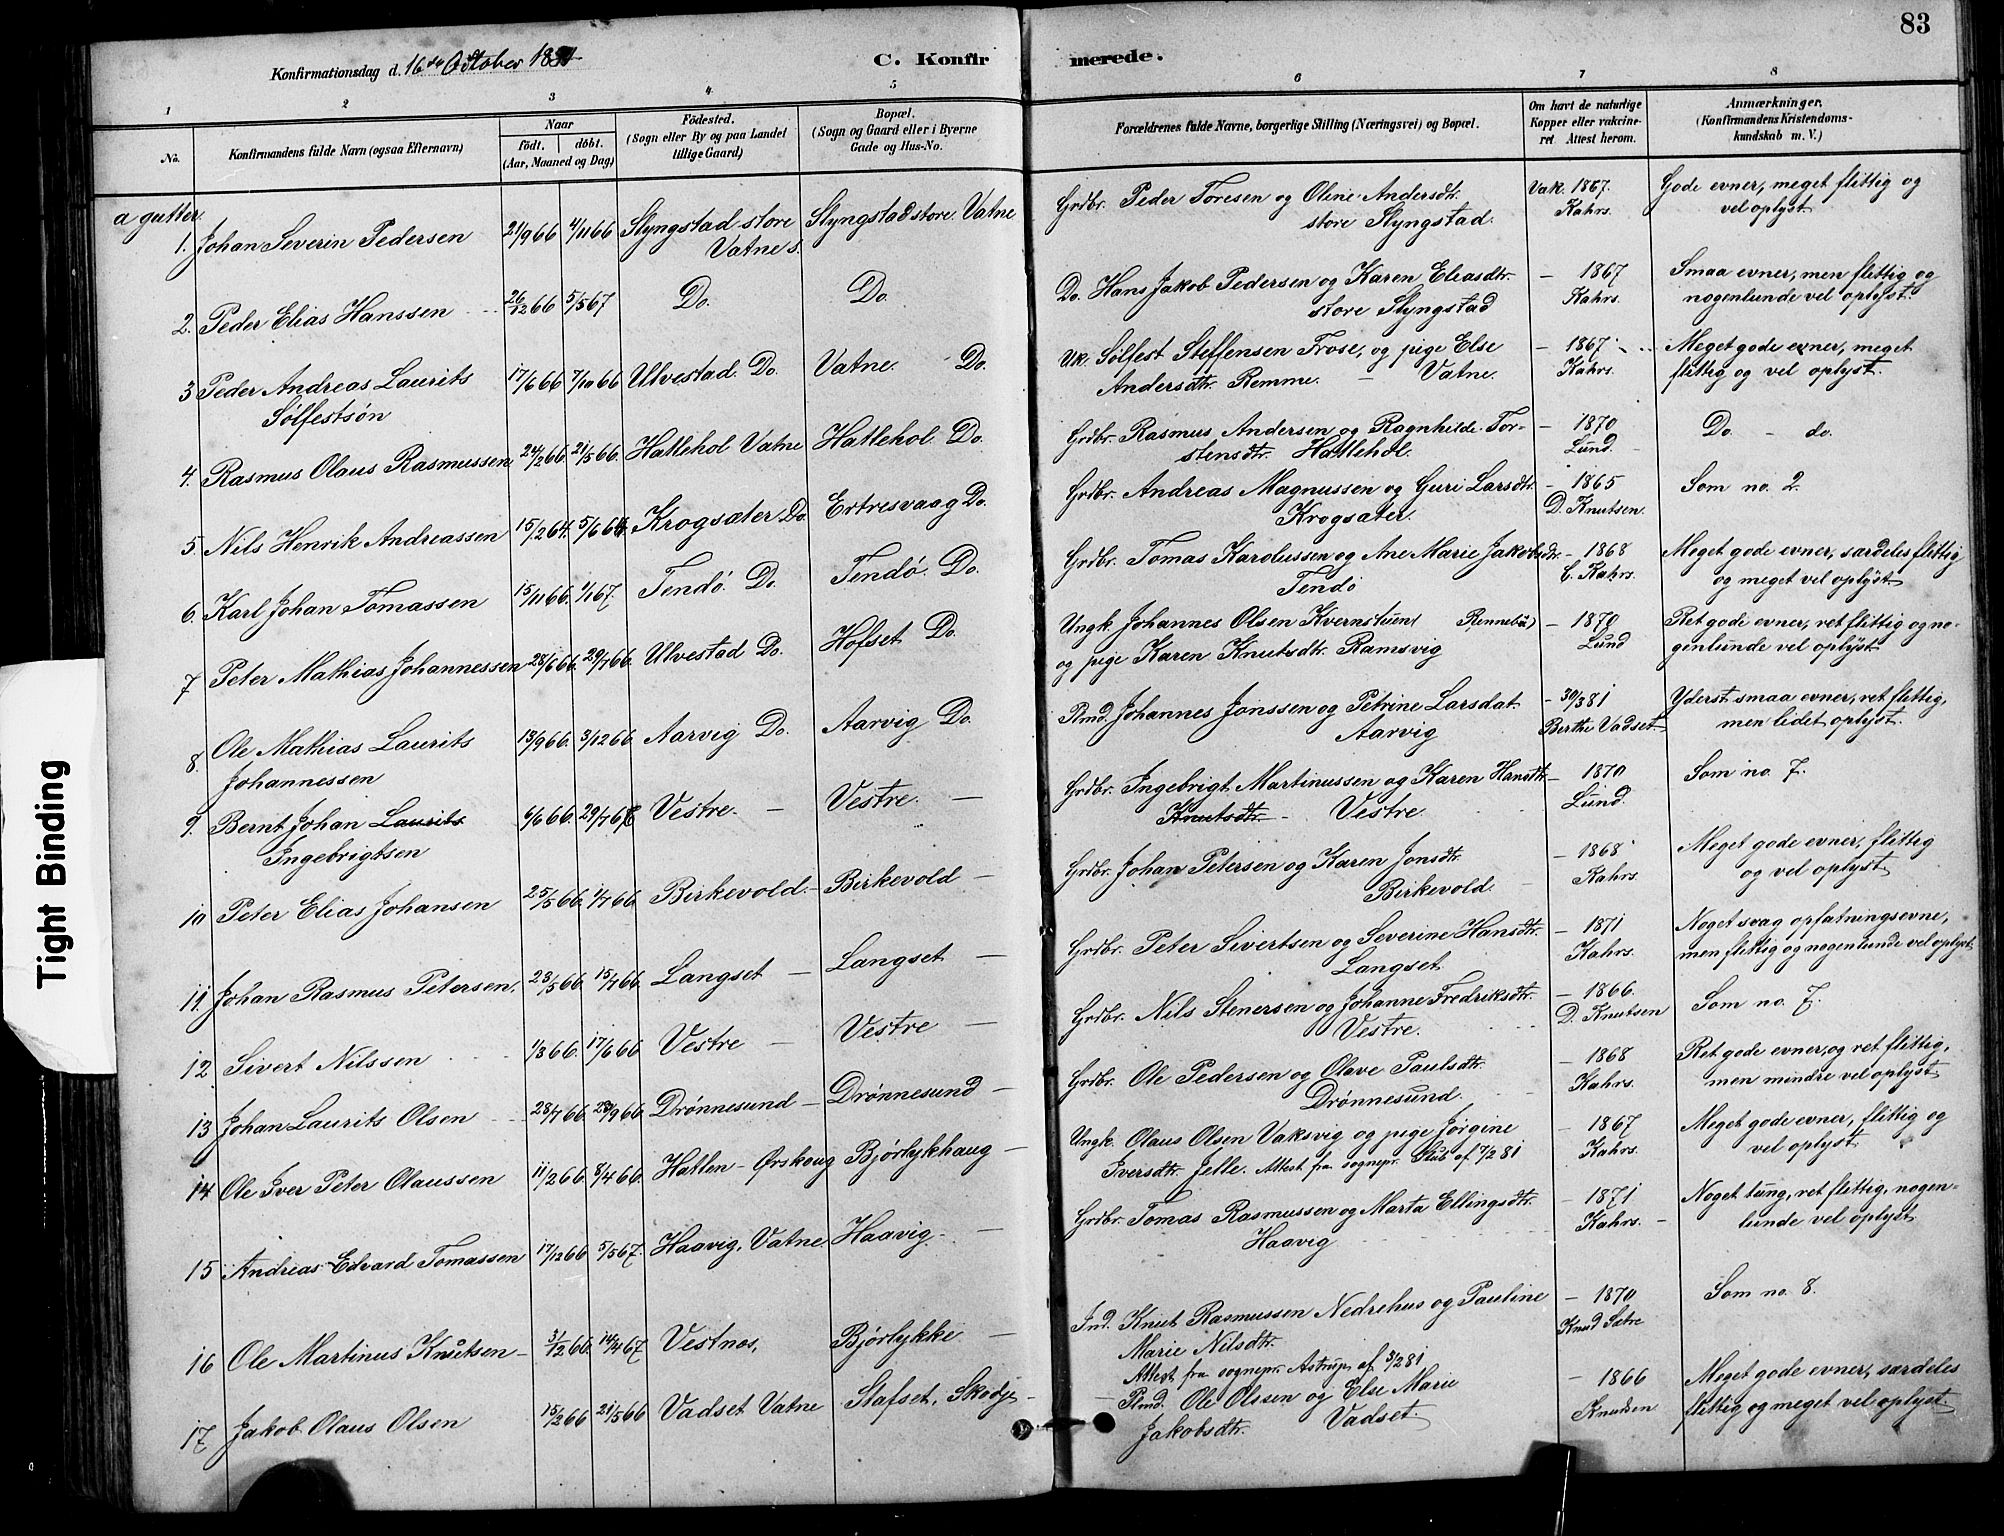 83
Konfirmationsdag d. 16de October 1881
C. Konfirmerede.
1 2 3 4 5 6 7 8
No.
Konfirmandens fulde Navn (ogsaa Efternavn)
Naar
födt. döbt.
(Aar, Maaned og Dag)
Födested.
(Sogn eller By og paa Landet
tillige Gaard)
Bopæl.
(Sogn og Gaard eller i Byerne
Gade og Hus-No.
Forældrenes fulde Navne, borgerlige Stilling (Næringsvei) og Bopæl.
Om havt de naturlige
Kopper eller vakcine-
ret. Attest herom.
Anmærkninger,
(Konfirmandens Kristendoms-
kundskab m. V.)
a gutter.
1. Johan Severin Pedersen 21/9 66 4/11 66 Slyngstad store Slyngstad store Vatne Grdbr. Peder Toresen og Oline Andersdtr. Vak. 1867. Gode evner, meget flittig og
Vatne s. store Slyngstad. Kahrs. vel oplyst
2. Peder Elias Hanssen 26/12 66 5/5 67 Do. Do. Do. Hans Jakob Pedersen og Karen Eliasdtr. – 1867 Smaa evner, men flittig og
store Slyngstad Kahrs. nogenlunde vel oplyst.
3 Peder Andreas Laurits 17/6 66 7/10 66 Ulvestad. Do. Vatne. Do. Uk. Sölfest Steffensen Frose, og pige Else – 1867 Meget gode evner, meget
Sölfestsön Andersdtr. Remme. – Vatne. Kahrs. flittig og vel oplyst.
4. Rasmus Olaus Rasmussen 24/2 66. 21/5 66. Hatlehol Vatne Hatlehol Do. Grdbr. Rasmus Andersen og Ragnhilde Tor- – 1870 Do. – do.
stensdtr. Hatlehol. Lund.
5. Nils Henrik Andreassen 15/2 64. 5/6 64 Krogsæter Do. Ertresvaag Do. Grdbr. Andreas Magnussen og Guri Larsdtr. – 1865 Som no. 2.
Krogsæter. D. Knutsen.
6. Karl Johan Tomassen 15/11 66. 1/1 67. Tendö. Do. Tendö. Do. Grdbr. Tomas Karolussen og Ane Marie Jakobsdtr. – 1868 Meget gode evner, særdeles flittig
Tendö C. Kahrs. og meget vel oplyst
7 Peter Mathias Johannessen 28/6 66. 29/7 66. Ulvestad Do. Hofset Do. Ungk. Johannes Olsen Kvernstuen (Rennebu) – 1870 Ret gode evner, ret flittig og no-
og pige Karen Knutsdtr. Ramsvig Lund genlunde vel oplyst
8. Ole Mathias Laurits 13/9 66. 3/12 66. Aarvig Do. Aarvig Do. Pmd. Johannes Jonssen og Petrine Larsdat. – 30/3 81 Yderst smaa evner, ret flittig,
Johannessen Aarvig Berthe Vadset. men lidet oplyst.
9. Bernt Johan Laurits 6/6 66. 29/7 66 Vestre. – Vestre. – Grdbr. Ingebrigt Martinussen og Karen Hansdtr. – 1870 Som no. 7.
Ingebrigtsen Knutsdtr. – Vestre. Lund.
10 Peter Elias Johansen 25/5 66. 1/7 66. Birkevold. – Birkevold – Grdbr. Johan Petersen og Karen Jonsdtr. – 1868 Meget gode evner, flittig
Birkevold. Kahrs. og vel oplyst
11. Johan Rasmus Petersen. 23/5 66. 15/7 66. Langset – Langset – Grdbr. Peter Sivertsen og Severine Hansdtr. – 1871 Noget svag opfatningsevne,
Langset Kahrs. men flittig og nogenlunde vel oplyst.
12 Sivert Nilssen 1/3 66. 17/6 66 Vestre – Vestre – Grdbr. Nils Stenersen og Johanne Fredriksdtr. – 1866. Som no. 7.
Vestre. D. Knutsen
13 Johan Laurits Olsen 28/7 66 23/9 66 Drönnesund – Drönnesund – Grdbr. Ole Pedersen og Olave Paulsdtr. – 1868 Ret gode evner, og ret flittig,
Drönnesund. Kahrs. men mindre vel oplyst
14 Ole Iver Peter Olaussen 11/2 66 8/4 66. Hatlen – Ørskoug Bjørlykhaug – Ungk. Olaus Olsen Vaksvig og pige Jörgine – 1867 Meget gode evner, flittig og
Iversdtr. Jelle. Attest fra sognepr. Stub af 17/2 81 Kahrs. vel oplyst
15 Andreas Edvard Tomassen 17/12 66 5/5 67. Haavig, Vatne. Haavig – Grdbr. Tomas Rasmussen og Marta Ellingsdtr. – 1871 Noget tung, ret flittig, nogen-
Haavig Kahrs. – lunde vel oplyst
16 Ole Martinus Knutsen – 3/12 66. 14/4 67 Vestnes, Bjørlykke – Ind. Knut Rasmussen Nedrehus og Pauline – 1870 Som no. 8.
Marie Nilsdtr. Knud Sætre
Attest fra sognepr. Astrup af 3/2 81
17 Jakob Olaus Olsen 15/2 66 21/5 66 Vadset Vatne Stafset, Skodje – – Pmd. Ole Olssen og Else Marie – 1866 Meget gode evner, særdeles
Jakobsdtr. Vadset. Knudsen flittig og meget vel oplyst
Tight Binding